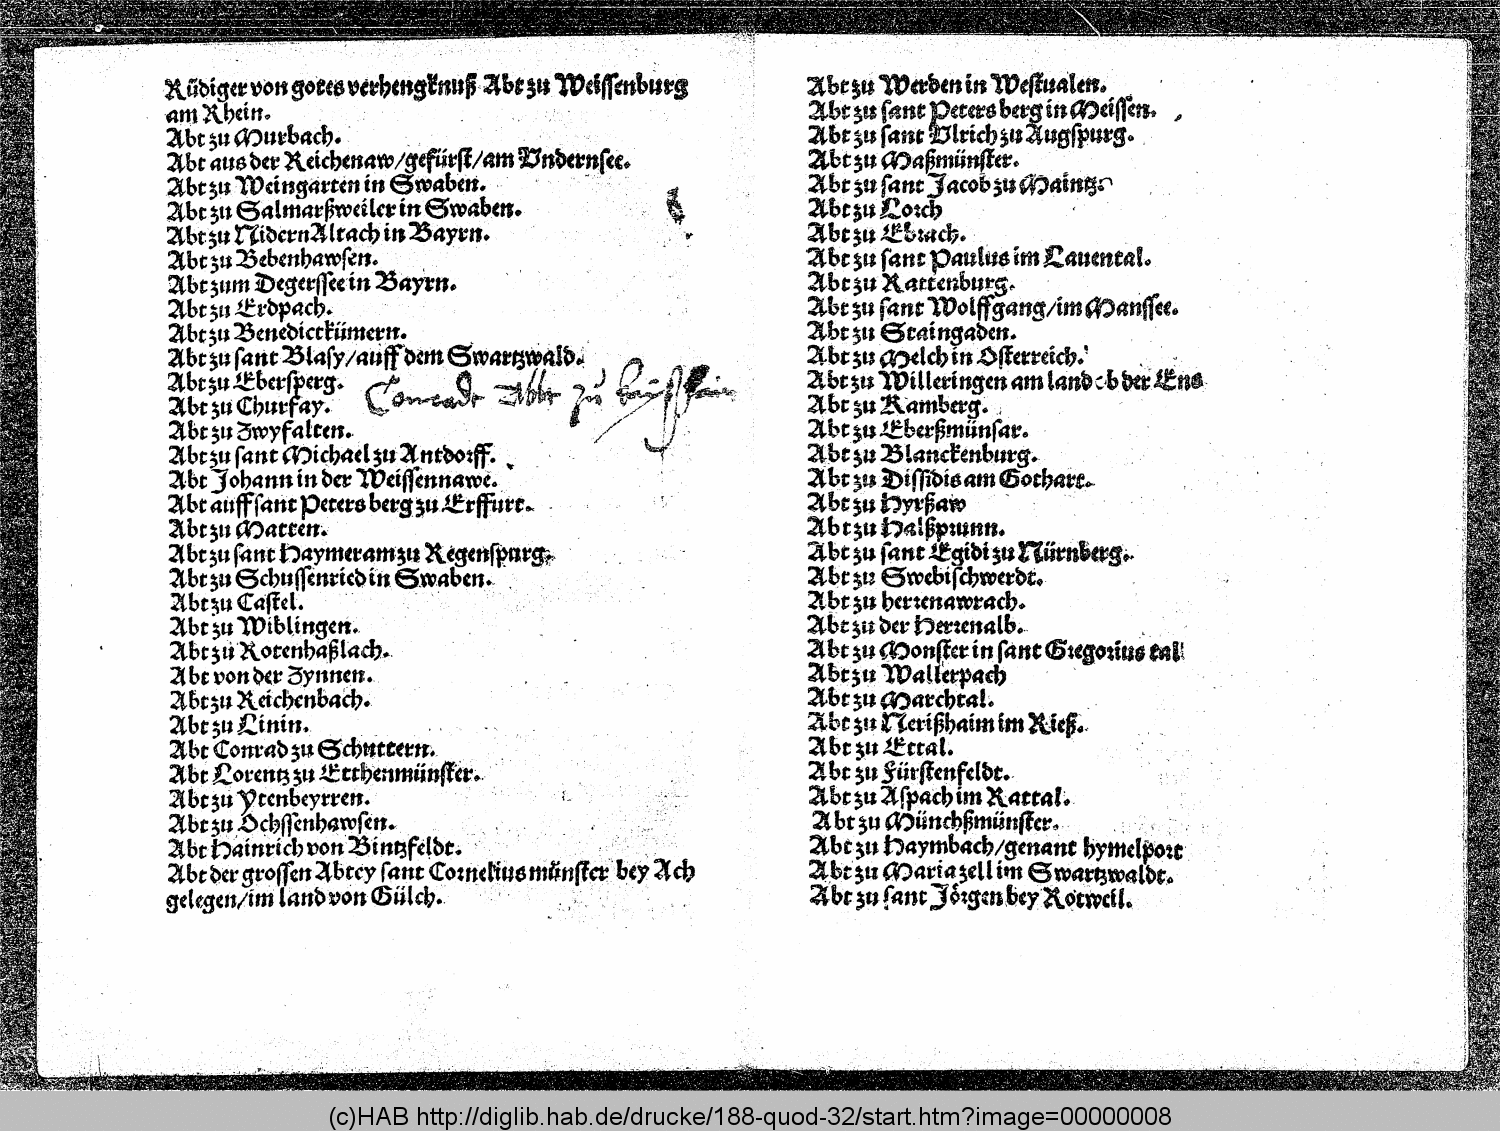 Rüdiger von gotes verhengknuß Abt zu Weissenburg
am Rhein.
Abt zu Murbach.
Abt aus der Reichenaw/gefürst/am Vndernsee.
Abt zu Weingarten in Swaben.
Abt zu Salmarßweiler in Swaben.
Abt zu NidernAltach in Bayrn.
Abt zu Bebenhawsen.
Abt zum Degerssee in Bayrn.
Abt zu Erdpach.
Abt zu Benedictkümern.
Abt zu sant Blasy/auff dem Swartzwald.
Abt zu Ebersperg.
Conradt Abbt zu
Abt zu Churfay.
Abt zu Zwyfalten.
Abt zu sant Michael zu Antdorff.
Abt Johann in der Weissennawe.
Abt auff sant Peters berg zu Erffurt.
Abt zu Matten.
Abt zu sant Haymeram zu Regenspurg.
Abt zu Schussenried in Swaben.
Abt zu Castel.
Abt zu Wiblingen.
Abt zu Rotenhaßlach.
Abt von der Zynnen.
Abt zu Reichenbach.
Abt zu Linin.
Abt Conrad zu Schuttern.
Abt Lorentz zu Etthenmünster.
Abt zu Ytenbeyrren.
Abt zu Ochssenhawsen.
Abt Hainrich von Bintzfeldt.
Abt der grossen Abtey sant Cornelius münster bey Ach
gelegen/im land von Gülch.
Abt zu Werden in Westualen.
Abt zu sant Peters berg in Meissen.
Abt zu sant Vlrich zu Augspurg.
Abt zu Maßmünster.
Abt zu sant Jacob zu Maintz.
Abt zu Lorch
Abt zu Ebrach.
Abt zu sant Paulus im Lauental.
Abt zu Rattenburg.
Abt zu sant Wolffgang/im Manssee.
Abt zu Staingaden.
Abt zu Melch in Osterreich.
Abt zu Willeringen am land ob der Ens
Abt zu Ramberg.
Abt zu Eberßmünsar.
Abt zu Blanckenburg.
Abt zu Dissidis am Gothart.
Abt zu Hyrßaw
Abt zu Halßprunn.
Abt zu sant Egidi zu Nürnberg.
Abt zu Swebischwerdt.
Abt zu herrenawrach.
Abt zu der Herrenalb.
Abt zu Monster in sant Gregorius tal
Abt zu Wallerpach
Abt zu Marchtal.
Abt zu Nerißhaim im Rieß.
Abt zu Ettal.
Abt zu Fürstenfeldt.
Abt zu Aspach im Rattal.
Abt zu Münchßmünster.
Abt zu Haymbach/genant hymelport
Abt zu Maria zell im Swartzwaldt.
Abt zu sant Jörgen bey Rotweil.
(c)HAB http://diglib.hab.de/drucke/188-quod-32/start.htm?image=00000008